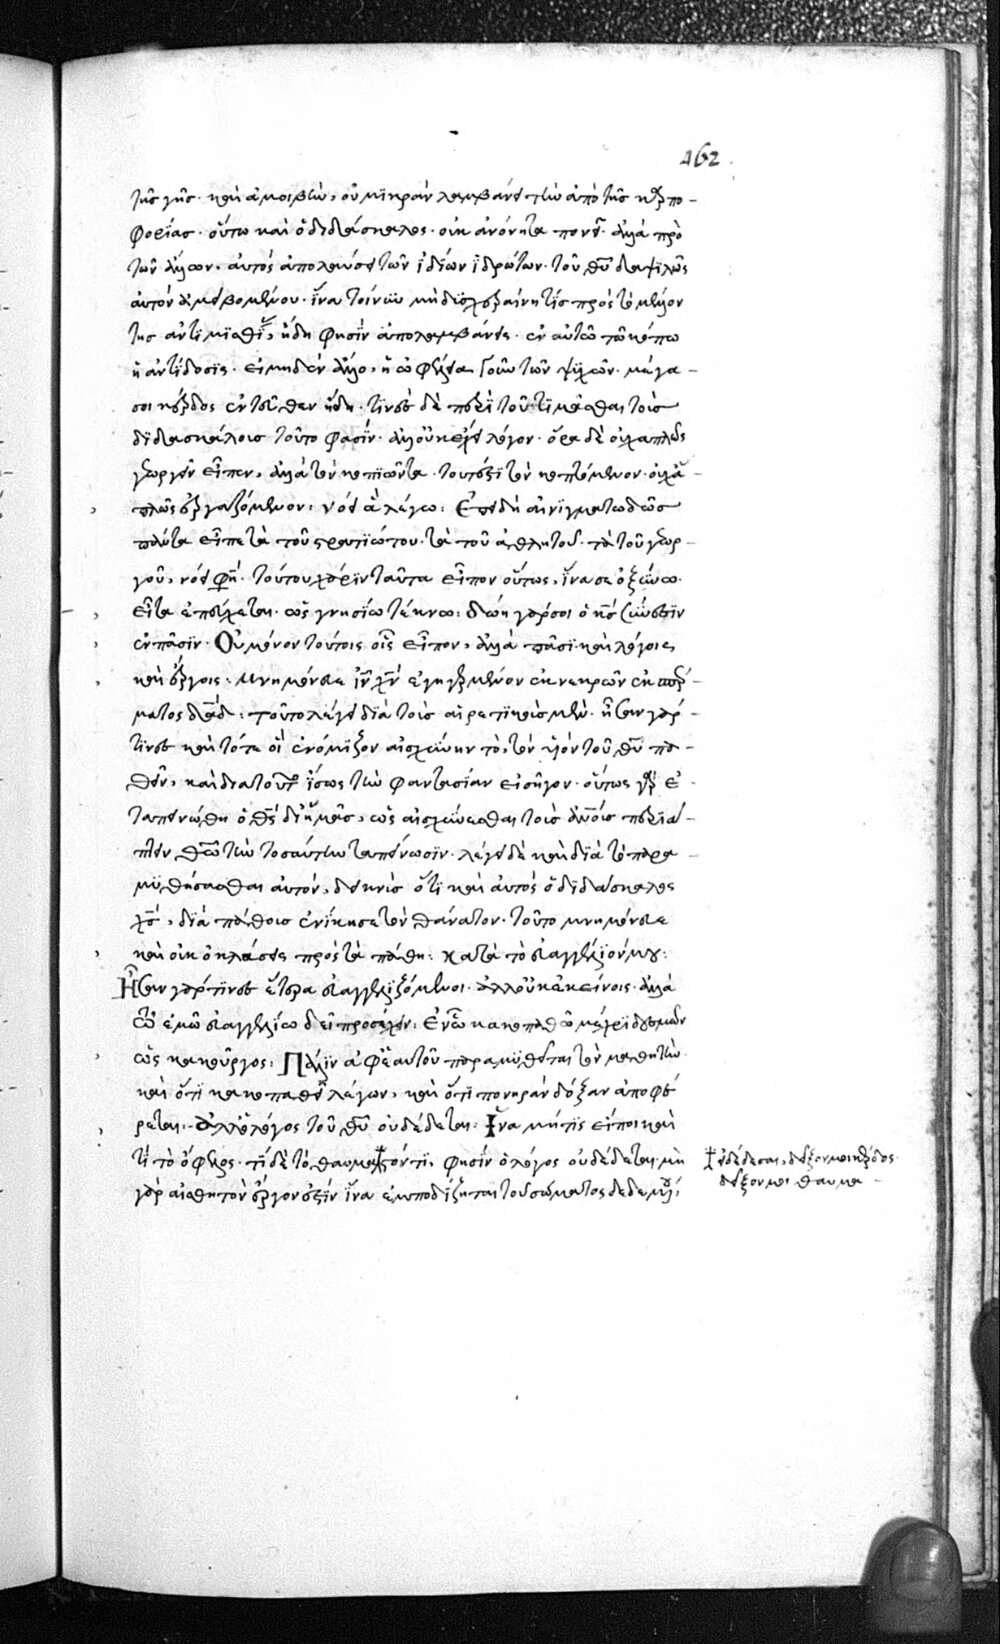 462
τῆς γῆς· καὶ ἀμοιβὴν, οὐ μικρὰν λαμβάνει τὴν ἀπὸ τῆς καρπο-
φορίας· οὕτω καὶ ὁ διδάσκαλος· οὐκ ἀνόνητα πονεῖ· ἀλλὰ πρὸ
τῶν ἄλλων· αὐτὸς ἀπολαύει τῶν ἰδίων ἱδρώτων· τοῦ θῦ δαψιλῶς
αὐτὸν ἀμειβομένου· ἵνα τοίνυν μὴ δυσχεραίνῃ τίς πρὸς τὸ μέλλον
τῆς ἀντιμισθίας, ἤδη φησὶν ἀπολαμβάνει· ἐν αὐτῶ τῶ κόπω
ἡ ἀντίδοσις· εἰ μηδὲν ἄλλο, ἡ ὠφέλεια γοῦν τῶν ψυχῶν· μέγα-
σοι κέρδος ἐντεῦθεν ἤδη· τινὲς δὲ περὶ τοῦ τιμᾶσθαι τοὺς
διδασκάλους τοῦτο φασίν· ἀλλ οὐκ ἔχει λόγον· ὅρα δὲ οὐχ ἁπλῶς
γεωργὸν εἶπεν, ἀλλὰ τὸν κοπιῶντα· τουτέστι τὸν κοπτόμενον· οὐχ ἁ-
πλῶς ἐργαζόμενον: νόει ἃ λέγω: Ἐπειδὴ αἰνιγματωδῶς
πάντα εἶπε τὰ τοῦ στρατιώτου· τὰ τοῦ ἀθλητοῦ· τὰ τοῦ γεωρ-
γοῦ, νόει φησί· τούτου χάριν ταῦτα εἶπον οὕτως, ἵνα σε ὀξύνω·
εἶτα ἐπεύχεται· ὡς γνησίω τέκνω: δώη γάρ σοι ὁ κς σύνεσιν
ἐν πᾶσιν· Οὐ μόνον τούτοις οἷς εἶπον, ἀλλὰ πᾶσι καὶ λόγοις
καὶ ἔργοις: μνημόνευε ιν χν ἐγηγερμένον ἐκ νεκρῶν ἐκ σπέρ-
ματος δαδ: τοῦτο λέγει διὰ τοὺς αἱρετικοὺς μὲν· ἦσαν γάρ-
τινὲς καὶ τότε οἳ ἐνόμιζον αἰσχύνην τὸ, τὸν υἱὸν τοῦ θῦ πα-
θεῖν, καὶ διὰ τοῦτο ἴσως τὴν φαντασίαν εἰσῆγον· οὕτως γὰρ ἐ-
ταπεινώθη ὁ θς δι ἡμᾶς, ὡς αἰσχύνεσθαι τοὺς ἀνους περιά-
πτειν θῶ τὴν τοσαύτην ταπείνωσιν· λέγει δὲ καὶ διὰ τὸ παρα-
μυθήσασθαι αὐτόν, δεικνὺς ὅτι καὶ αὐτὸς ὁ διδάσκαλος
χς, διὰ πάθους ἐνίκησε τὸν θάνατον· τοῦτο μνημόνευε
καὶ οὐκ ὀκλάσεις πρὸς τὰ πάθη: κατὰ τὸ εὐαγγέλιόν μου:
Ἦσαν γάρ τινὲς ἕτερα εὐαγγελιζόμενοι· ἀλλ οὐκ ἐκείνοις· ἀλλὰ
τῶ ἐμῶ εὐαγγελίω δεῖ προσέχειν: Ἐν ὧ κακοπαθῶ μέχρι δεσμῶν
ὡς κακοῦργος: Πάλιν ἀφ ἑαυτοῦ παραμυθεῖται τὸν μαθητὴν·
καὶ ὅτι κακοπαθεῖ λέγων, καὶ ὅτι πονηρὰν δόξαν ἀποφέ
ρεται:- ἀλλ ὁ λόγος τοῦ θῦ οὐ δέδεται: Ἵνα μήτις εἴποι καὶ
τί τὸ ὄφελος· τί δὲ τὸ θαυμαστόν τι, φησὶν ὁ λόγος οὐ δέδεται· μὴ
γὰρ αἰσθητὸν ἔργον ἐστίν ἵνα ἐμποδίζηται τοῦ σώματος δεδεμένου·
εἰ δέδεσαι, δεῖξον μοι κέρδος·
δεῖξον μοι θαυμα-